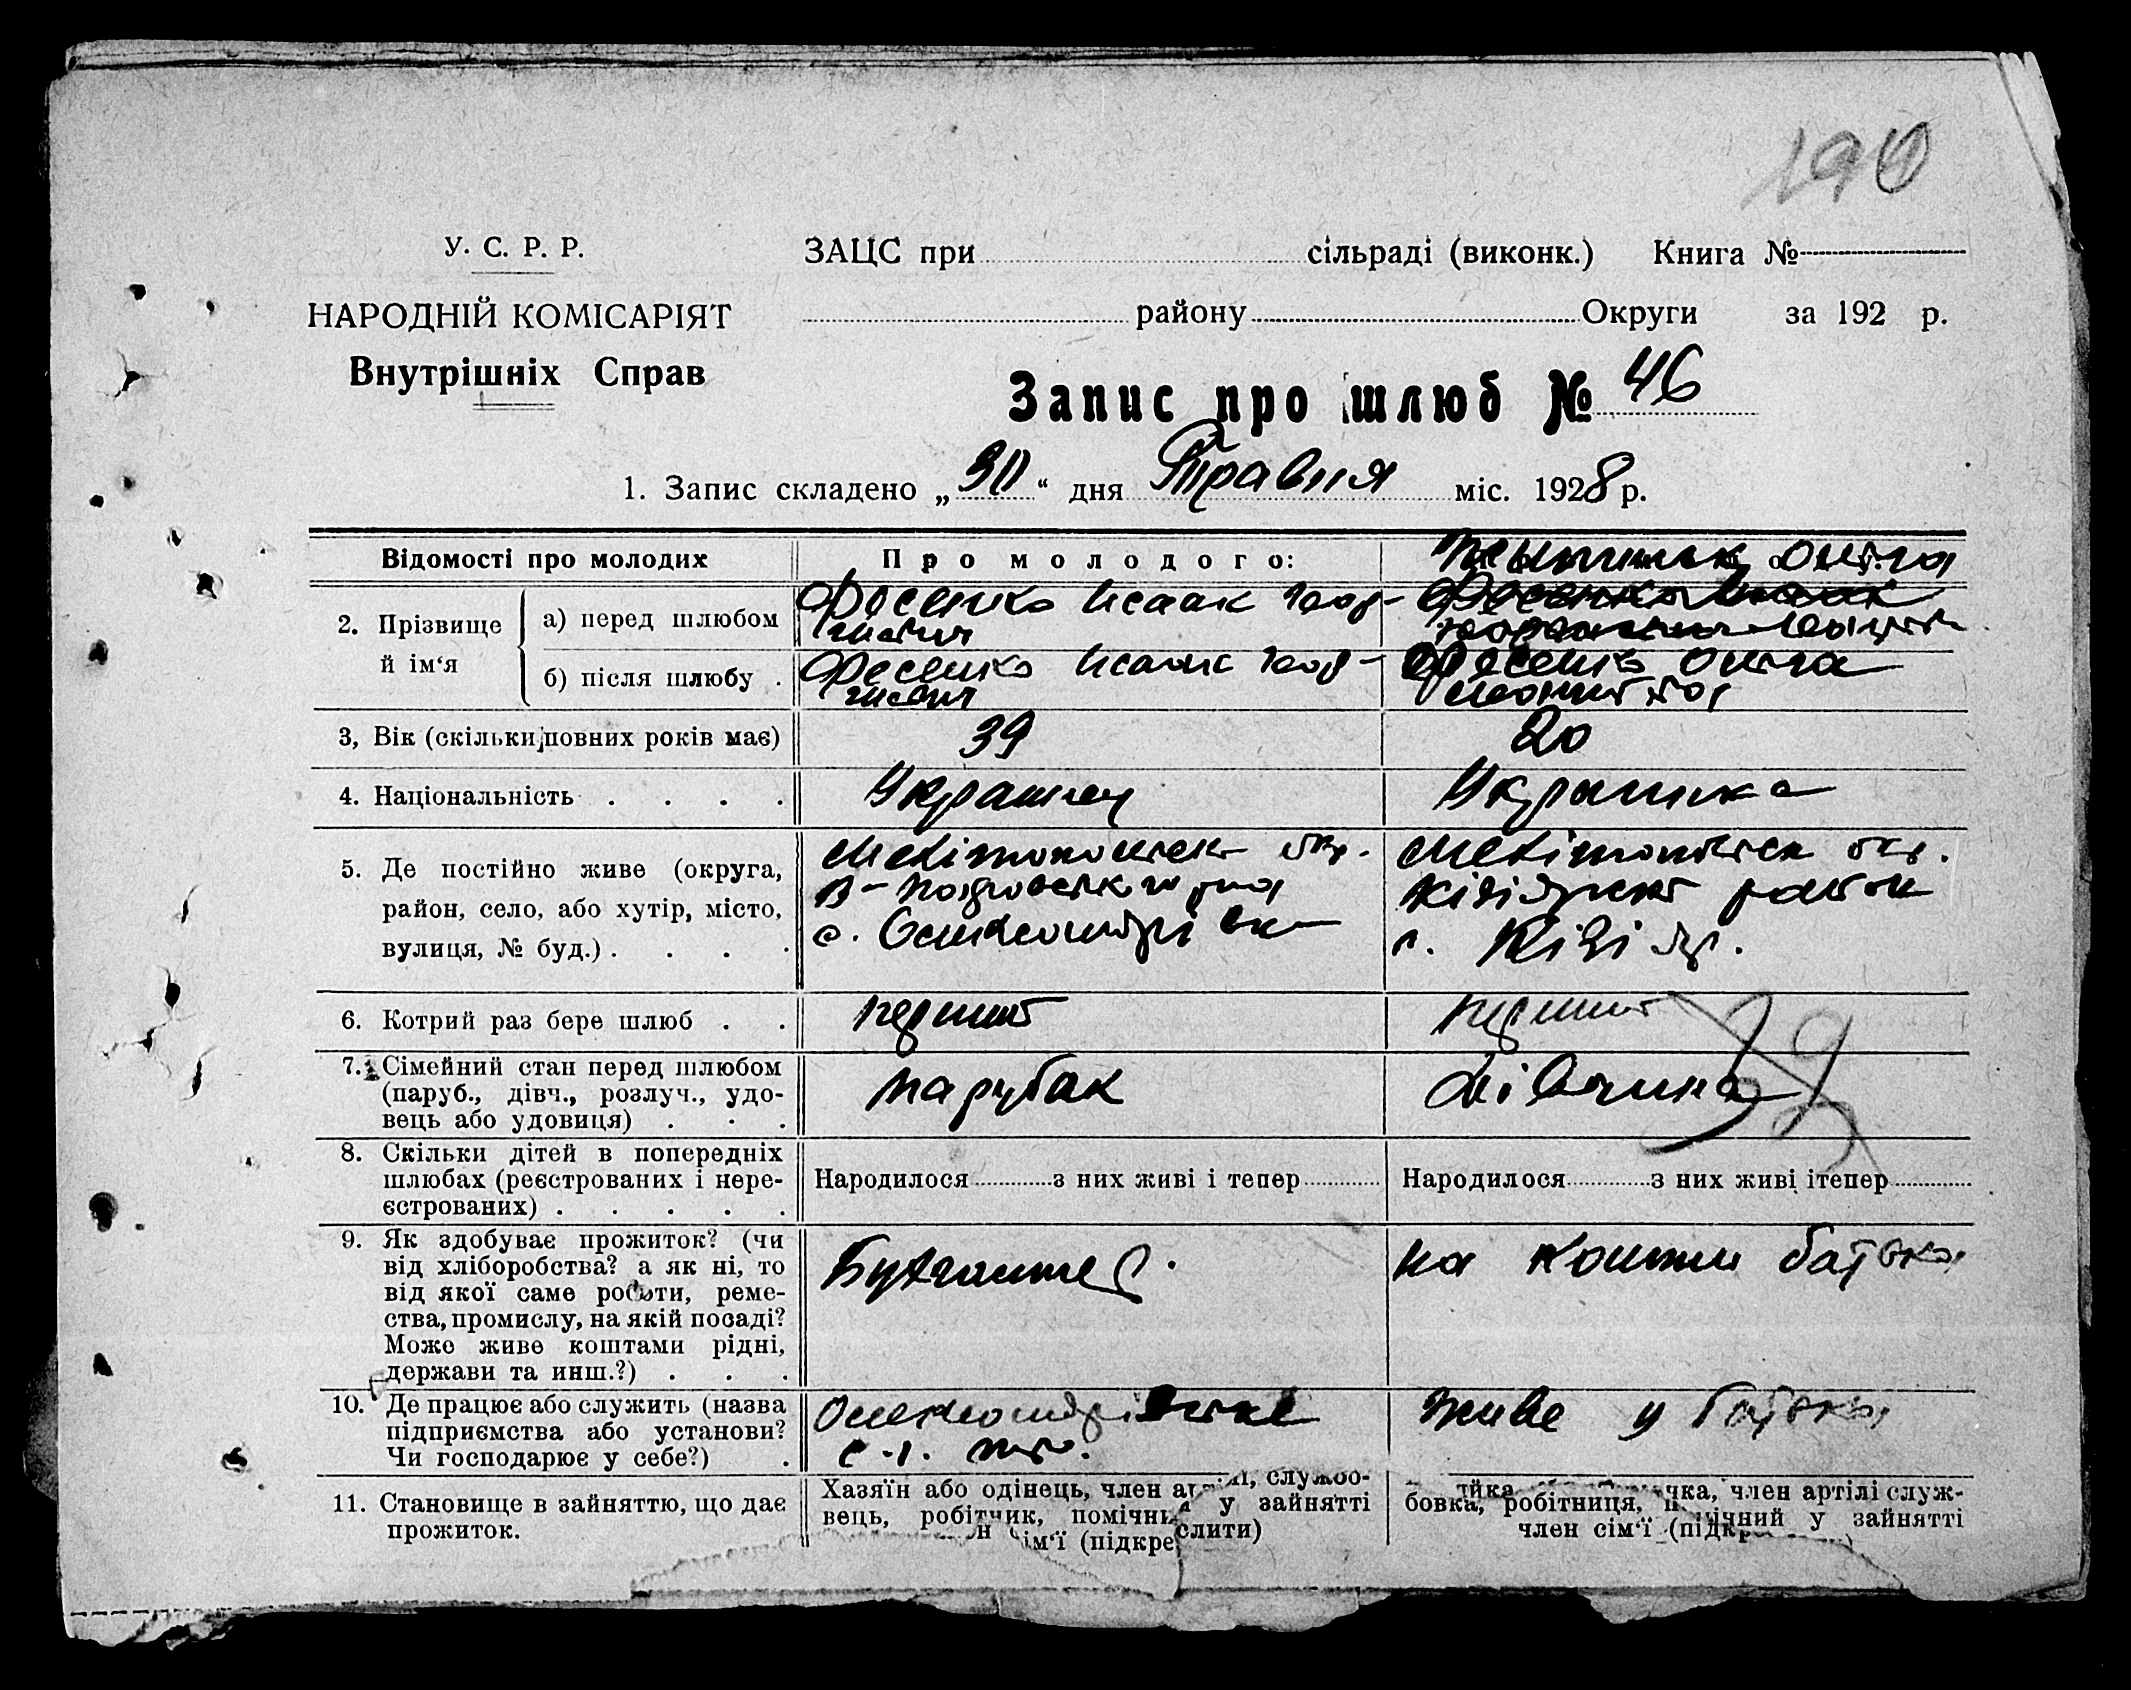 190
У. С. Р. Р.
НАРОДНІЙ КОМІСАРІЯТ
Внутрішніх Справ
ЗАЦС при сільраді (виконк.) Книга №
району Округи за 192 р.
Запис про шлюб № 46
1. Запис складено „30“ дня Травня міс. 1928 р.
Відомості про молодих
Про молодого:
2. Прізвище й ім‘я
а) перед шлюбом
Фесенко Исаак
б) після шлюбу .
Фесенко Исаак
Фесенко
3, Вік (скільки повних років має)
39
20
4. Національність . . . .
Украинец
Украинка
5. Де постійно живе (округа,
район, село, або хутір, місто,
вулиця, № буд.) . . . .
Мелітопольск окр.
с.
Мелітопольск окр.
район
с. Кізіяр.
6. Котрий раз бере шлюб . .
перший
перший
7. Сімейний стан перед шлюбом
(паруб., дівч., розлуч., удо-
вець або удовиця) . . .
парубак
дівчина
39
8. Скільки дітей в попередніх
шлюбах (реєстрованих і нере-
єстрованих) . . . . .
Народилося з них живі і тепер
Народилося з них живі ітепер
9. Як здобуває прожиток? (чи
від хліборобства? а як ні, то
від якої саме роботи, реме-
ства, промислу, на якій посаді?
Може живе коштами рідні,
держави та инш.?) . . .
Бухгалтер.
на кошти батька
10. Де працює або служить (назва
підприємства або установи?
Чи господарює у себе?) .
с.-г. тво.
живе у батька
11. Становище в зайняттю, що дає
прожиток.
Хазяїн або одінець, член службо-
вець, робітник, у зайнятті
сім‘ї (підкреслити)
член артілі служ-
бовка, робітниця, у зайнятті
член сім‘ї